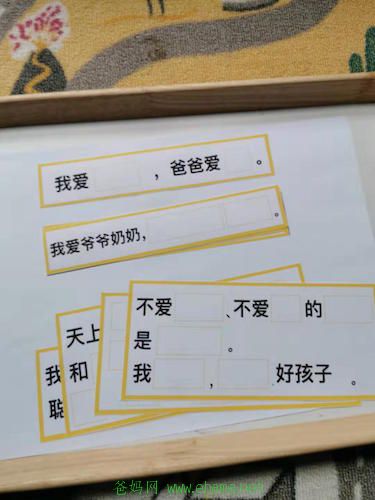 我爱 ，爸爸爱 。
我爱爷爷奶奶， 。
天上
我
和
聪
不爱 、不爱 的
是 。
我 ， 好孩子 。
爸妈网 www.ebama.net